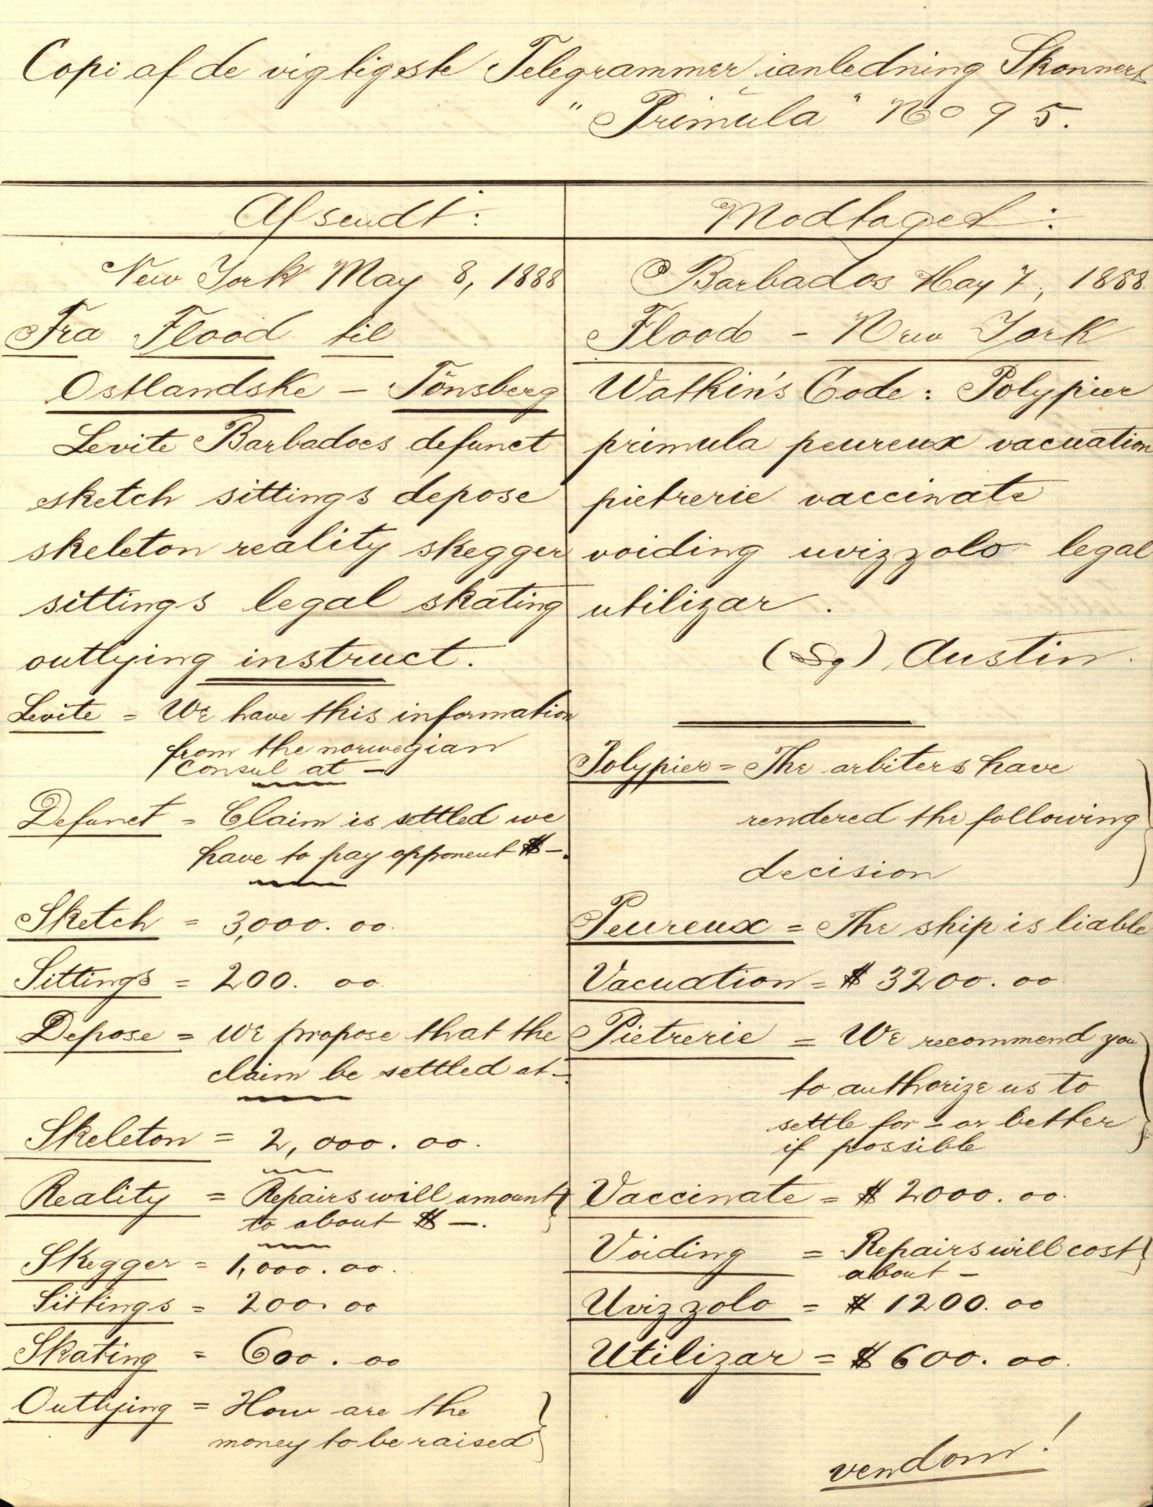 Copi af de vigtigste Telegrammer ianledning Skonnert
"Primula" No 95.
Afsendt:
New York May 8, 1888
Fra Flood til
Ostlandske - Tönsberg
Levite Barbadoes defunct
sketch sittings depose
skeleton reality skegger
sittings legal skating
outlying instruct.
Levite = We have this information
from the norwegian
Consul at -
Defunct = Claim is settled we
have to pay opponent $ -.
Sketch = 3,000.00
Sittings = 200.00
Depose = We propose that the
claim be settled at -
Skeleton = 2,000.00.
Reality = Repairs will amount
to about $ -.
Skegger = 1,000.00.
Sittings = 200.00
Skating = 600.00
Outlying = How are the
money to be raised
Modtaget:
Barbados May 7, 1888
Flood - New York
Watkin's Code: Polypier
primula peureux vacuation
pietrerie vaccinate
voiding uvizzolo legal
utilizar.
(Sg) Austin.
Polypier = The arbiters have
rendered the following
decision
Peureux = The ship is liable
Vacuation = $ 3200.00
Pietrerie = We recommend you
to authorize us to
settle for - or better
if possible
Vaccinate = $ 2000.00.
Voiding = Repairs will cost
about -
Uvizzolo = $ 1200.00
Utilizar = $ 600.00.
vendom!